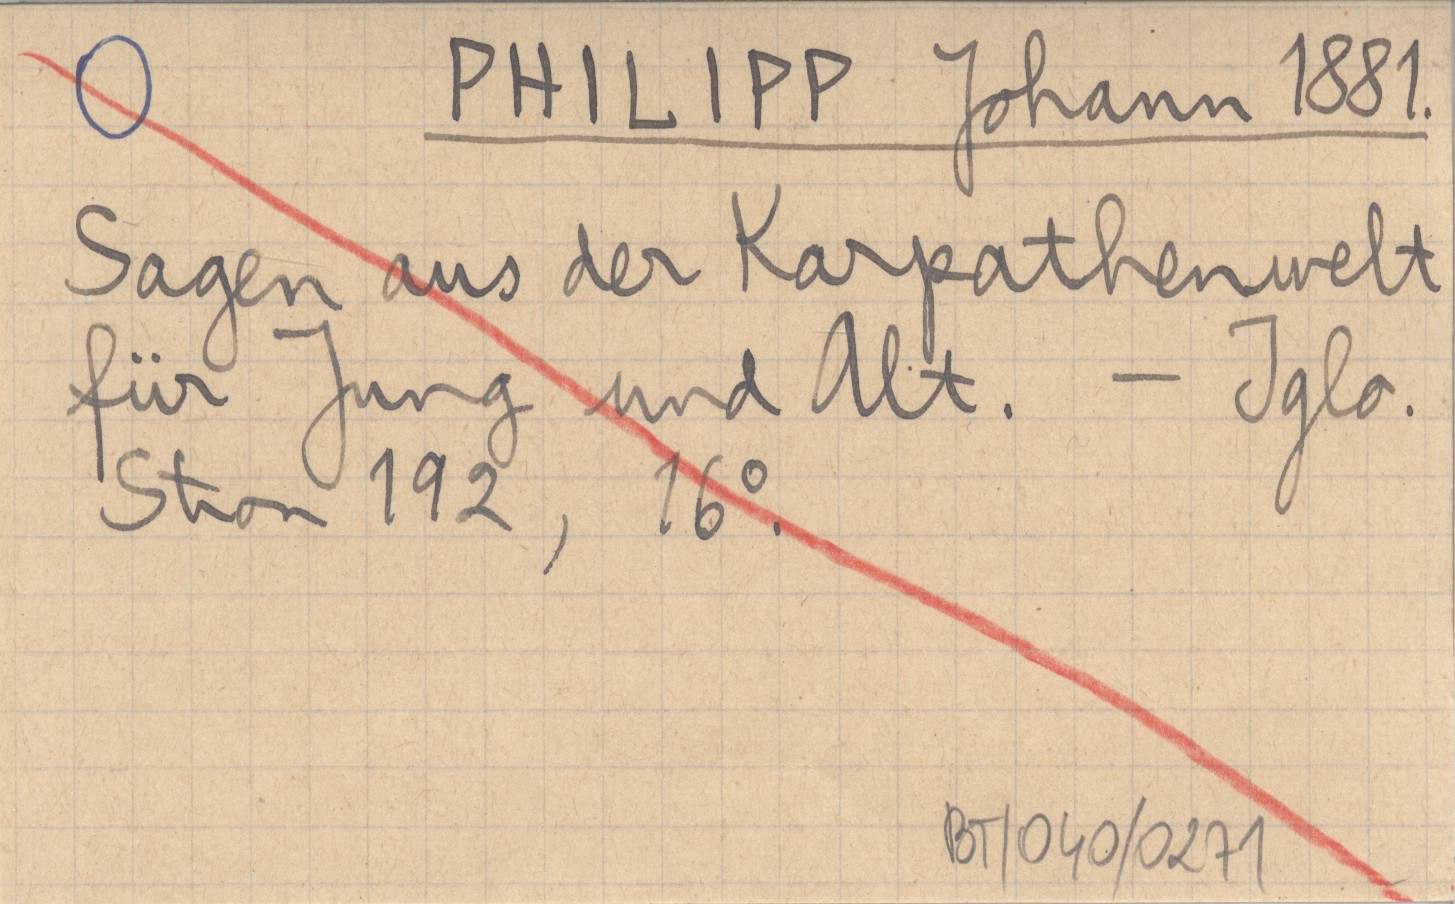 PHILIPP Johann 1881.
Sagen aus der Karpathenwelt
für Jung und Alt. — Iglo.
Stron 192, 16°.
BT/040/0271